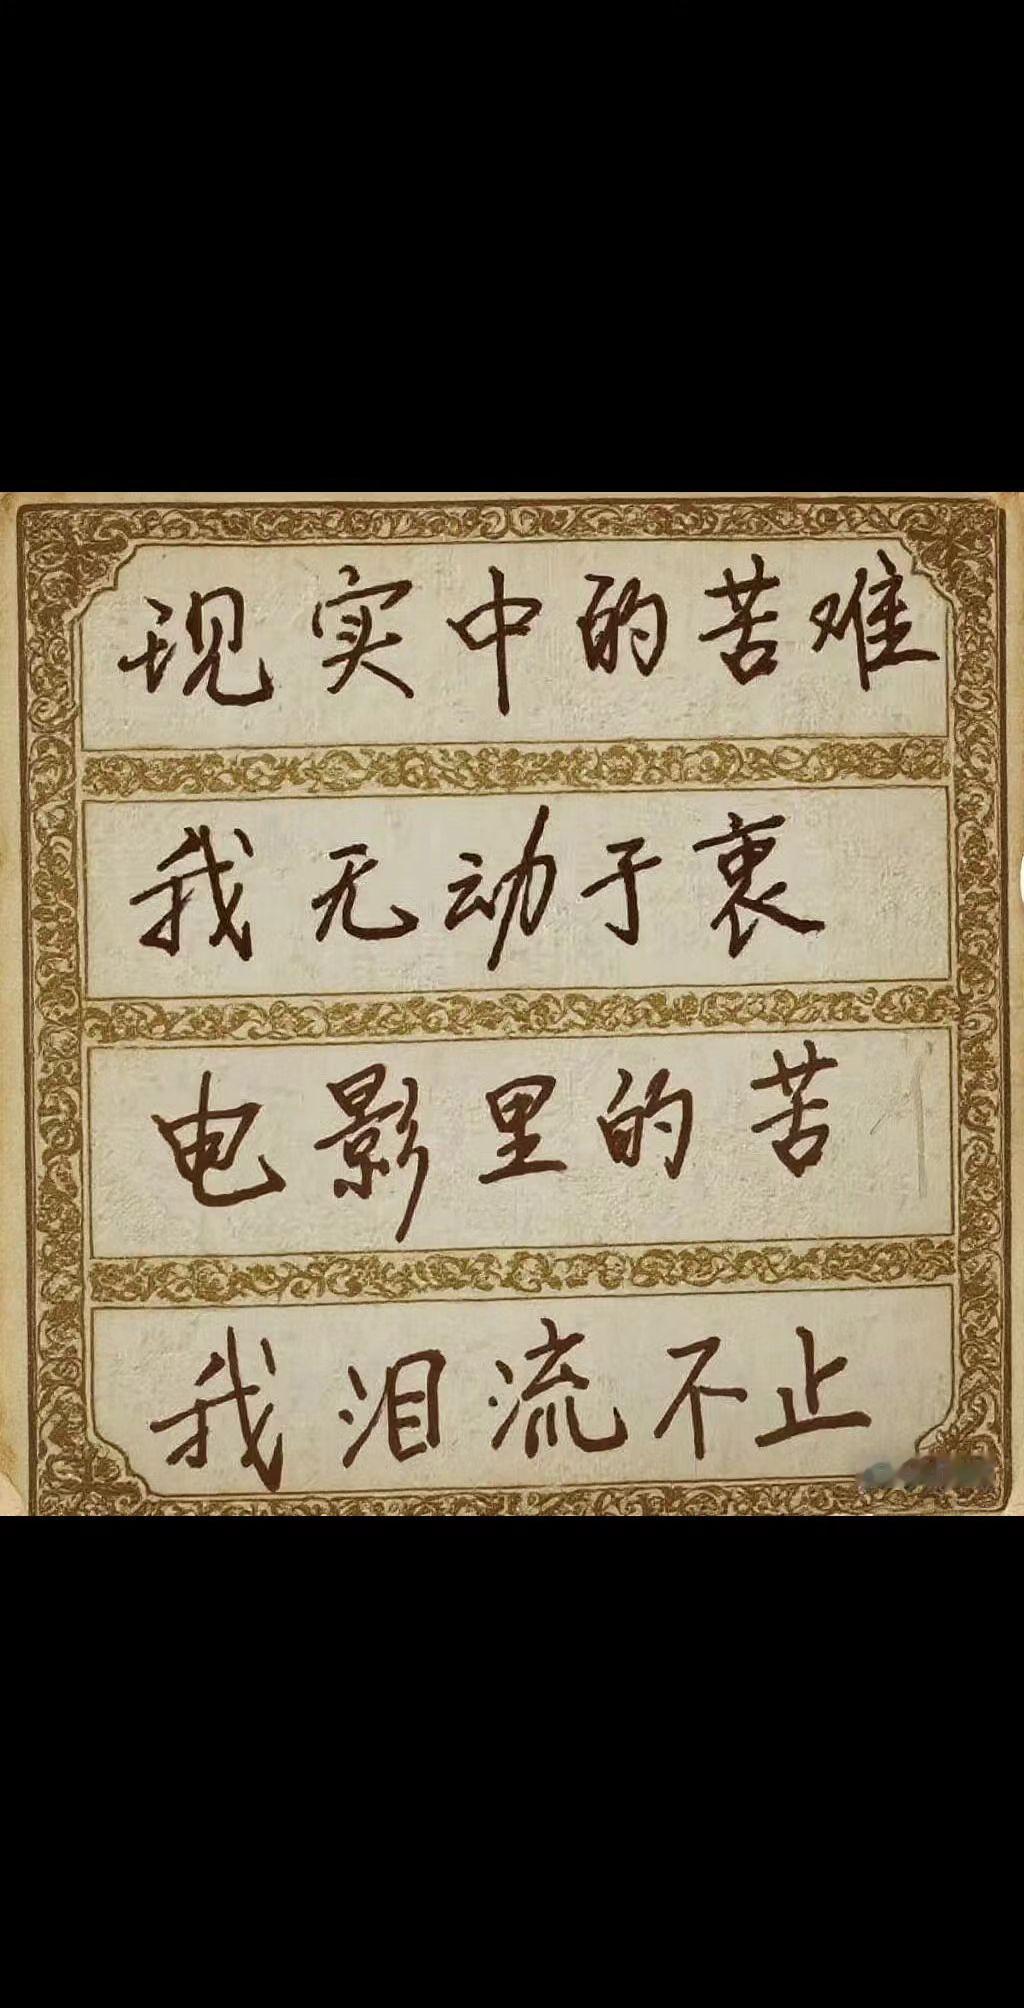 现实中的苦难
我无动于衷
电影里的苦
我泪流不止